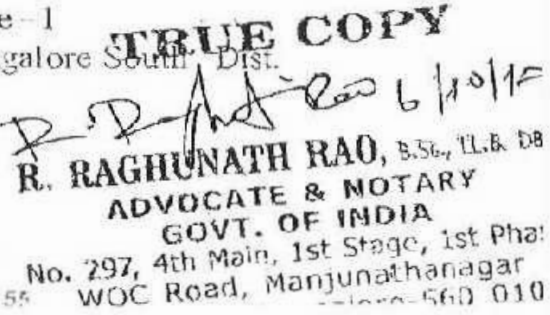 e-1
TRUE COPY
galore South Dist.
R. RAGHUNATH RAO, B.Sc., LL.B.
ADVOCATE & NOTARY
GOVT. OF INDIA
No. 297, 4th Main, 1st Stage, 1st Pha
55 WOC Road, Manjunathanagar
560 010